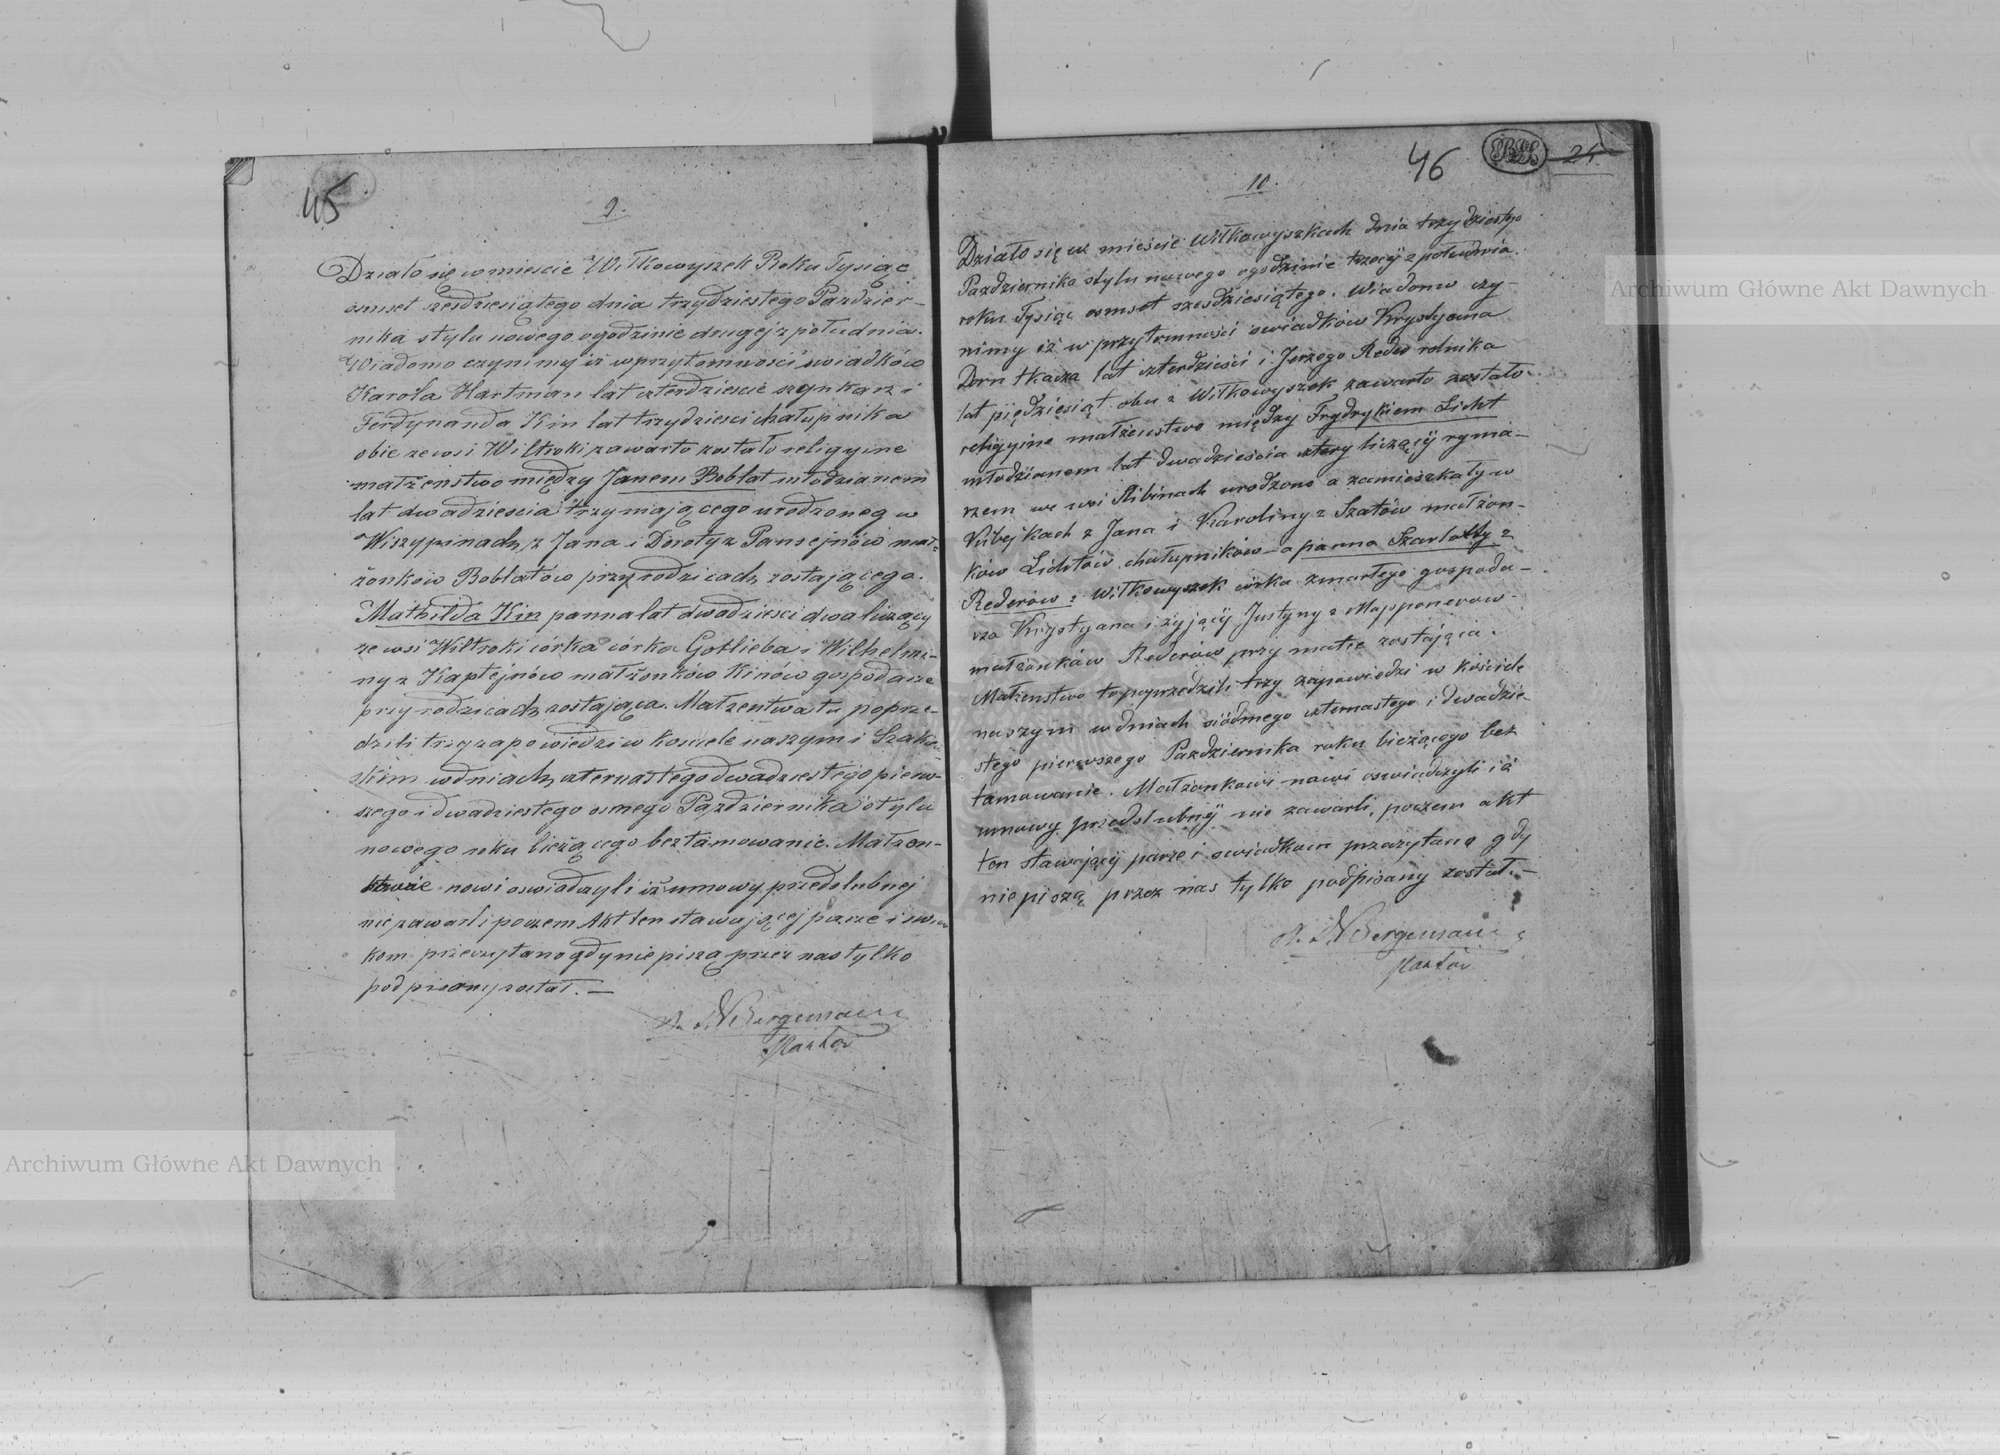 45
9.
Działo się w mieście Wiłkowyszek Roku Tysiąc
osmset sześdziesiątego dnia trzydziestego Paździer-
nika stylu nowego o godzinie drugej z południa.
Wiadomo czynimy iż w przytomności swiadków
Karola Hartman lat czterdzieście szynkarz i
Ferdynanda Kin lat trzydzieści chałupnika
obie ze wsi Wiltroki zawarto zostało religijne
małżenstwo między Janem Boblat młodzianem
lat dwadzieścia trzy mającego urodzoneg w
Wiszypinach z Jana i Doroty z Pansejnów mał-
żonków Boblatów przy rodzicach zostającego.
Mathilda Kin panna lat dwadzieści dwa licząćy
ze wsi Wiltroki córka córka Gotlieba i Wilhelmi-
ny z Kaptejnów małżonków Kinów gospodarze
przy rodzicach zostająca. Małzentwa tu poprze-
dzili trzy zapowiedzi w kosciele naszym i Szako-
skim w dniach czternastego dwadziestego pierw-
szego i dwadziestego osmego Października stylu
nowego roku bieżącego beztamowanie. Małzon-
nowi oswiadczyli iż umowy przedslubnej
nie zawarli poczem Akt ten stawającej parze i swia
kom przeczytano gdy nie piszą przez nas tylko
podpisany został. —
Bergemann
Pastor
46
21
10.
Działo się w mieście Wiłkowyszkach dnia trzydziestego
Października stylu nowego o godzinie trzecij z południa.
roku Tysiąc osmset szesdziesiątego. Wiadomo czy-
nimy iż w przytomności swiadków Krystyana
Dorn tkacza lat czterdzieści i Jerzego Reder rolnika
lat pięćdziesiąt obu z Wiłkowyszek zawarto zostało
religijne małżeństwo między Frydrykiem Licht
młodzianem lat dwadzieścia cztery liczącÿ ryma-
rzem we wsi Ribinach urodzono a zamieszkały w
Kubejkach z Jana i Karoliny z Szatów małżon-
ków Lichtów chałupników a panna Szarlotty z
Rederow z Wiłkowyszek córka zmarłego gospoda-
rza Krystyana i żyjącÿ Justyny z Mapponerow
małżonków Rederów przy matce zostająca.
Małzenstwo to poprzedzili trzy zapowiedzi w kościele
naszym w dniach siódmego czternastego i dwadzie-
stego pierwszego Października roku bieżącego bez
tamowanie. Małżonkowi nowi oswiadczyli iż
umowy przedslubnÿ nie zawarli, poczem akt
ten stawającÿ parze i swiadkum przeczytano gdy
nie piszą przez nas tylko podpisany został. —
Bergemann
Pastor
Archiwum Główne Akt Dawnych
Archiwum Główne Akt Dawnych